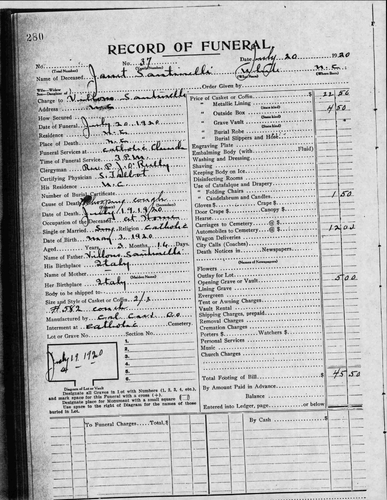 280
RECORD OF FUNERAL
No. 37 Date July 20 1920
(Total Number) (Yearly Number)
Name of Deceased Santinelli White N.C.
(What Race) (Where Born)
Order Given by
Charge to Santinelli
Address N.C.
How Secured
Date of Funeral July 20, 1920
Place of Death N.C.
Funeral Services at Catholic Church
Time of Funeral Service 3 P.M.
Clergyman Rev. P. J. O'Reilly
Certifying Physician S. Talbot
His Residence N.C.
Number of Burial Certificate
Cause of Death cough
Date of Death July 19, 1920
Occupation of the Deceased at Home
Single or Married Religion Catholic
Date of Birth May 3, 1920
Aged Years 2 Months 14 Days
Name of Father Santinelli
His Birthplace Italy
Name of Mother
(Maiden Name)
Her Birthplace Italy
Body to be shipped to
Size and Style of Casket or Coffin 2/6
#582 couch
Manufactured by Co
Interment at Catholic Cemetery
Lot or Grave No. Section No.
July 19 1920
1.
2.
3.
4.
5.
Diagram of Lot or Vault
Designate all Graves in Lot with Numbers (1, 2, 3, 4, etc.),
and mark space for this Funeral with a cross (+).
Designate place for Monument with a small square
Use space to the right of Diagram for the names of those
buried in Lot.
Price of Casket or Coffin 22 50
" Metallic Lining
" Outside Box 4 50
" Grave Vault
" Burial Robe
" Burial Slippers and Hose
Engraving Plate
Embalming Body (with Fluid)
Washing and Dressing
Shaving
Keeping Body on Ice
Disinfecting Rooms
Use of Catafalque and Drapery
" Folding Chairs
" Candelabrum and Candles 1 50
Gloves $ Crape $
Door Crape $ Canopy $
Hearse
Carriages to Cemetery @ $
Automobiles to Cemetery @ $ 12 00
Wagon Deliveries @ $
City Calls (Coaches) @ $
Death Notices in Newspapers
(Names of Newspapers)
Flowers
Outlay for Lot
Opening Grave or Vault 5 00
Lining Grave
Evergreen
Tent or Awning Charges
Vault Rental
Shipping Charges, prepaid
Removal Charges
Cremation Charges
Porters $ Watchers $
Personal Services
Music
Church Charges
Total Footing of Bill 45 50
By Amount Paid in Advance
Balance
Entered into Ledger, page or below.
To Funeral Charges Total $ By Cash